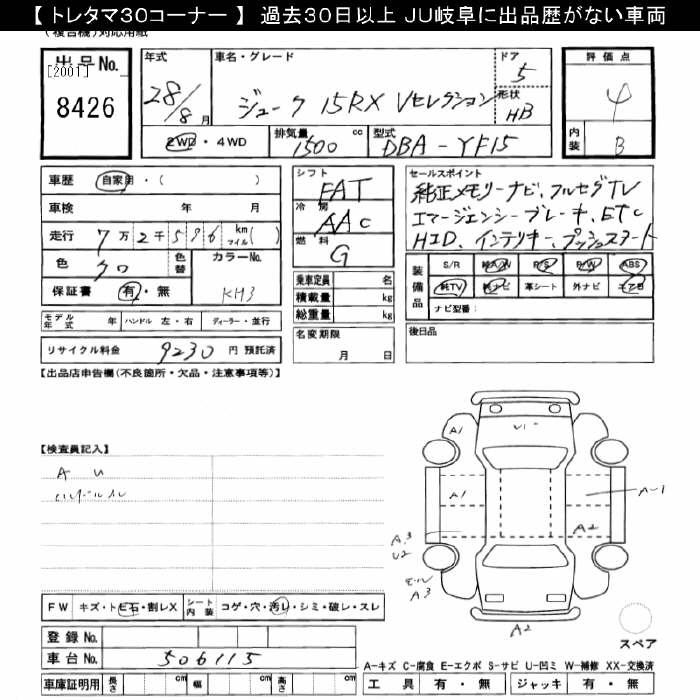 【 トレタマ30コーナー 】 過去30日以上 JU岐阜に出品歴がない車両
(複合機)対応用紙
出品No.
[2001]
8426
年式
28/8月
車名・グレード
ジューク 15RX Vセレクション
ドア
5
形状
HB
評価点
4
内装
B
2WD・4WD
排気量
1500 cc
型式
DBA-YF15
車歴
自家用・( )
車検 年 月
走行
7万2千596 km マイル( )
色
クロ
色替
カラーNo.
KH3
保証書
有・無
シフト
FAT
冷房
AAC
燃料
G
乗車定員 名
積載量 kg
総重量 kg
セールスポイント
純正メモリーナビ、フルセグTV
エマージェンシーブレーキ、ETC
HID、インテリキー、プッシュスタート
装備品
S/R 純A/W P/S P/W ABS
純TV 純ナビ 革シート 外ナビ エアB
ナビ型番:
モデル年式 年 ハンドル 左・右 ディーラー・並行
リサイクル料金 9230 円 預託済
名変期限
月 日
後日品
【出品店申告欄(不良箇所・欠品・注意事項等)】
【検査員記入】
A U
ハンドルスレ
A1
U1
A1
A-1
A2
A3
U2
モール
A3
A2
FW キズ・トビ石・割レX
シート内装 コゲ・穴・汚レ・シミ・破レ・スレ
登録No.
車台No. 506115
車庫証明用 長さ cm 幅 cm 高さ cm
スペア
A−キズ C−腐食 E−エクボ S−サビ U−凹ミ W−補修 XX−交換済
工具 有・無 ジャッキ 有・無